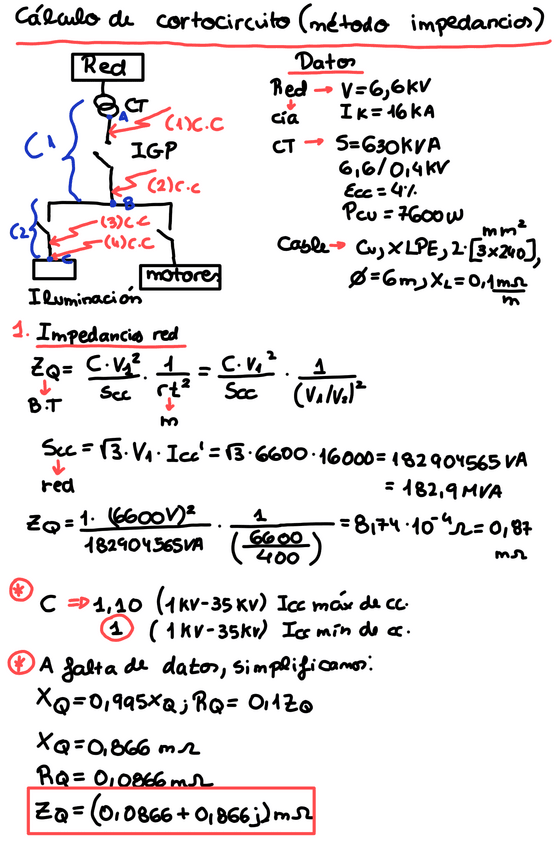 Cálculo de cortocircuito (método impedancias)
Red
CT
A
(1)C.C
C1
IGP
(2)C.C
B
C2
(3)C.C
(4)C.C
C
motores
Iluminación
Datos
Red → V=6,6KV
cía IK=16KA
CT → S=630KVA
6,6/0,4KV
Ecc=4%
Pcu=7600W
Cable → Cu, XLPE, 2·[3x240] mm²,
Ø=6m, XL=0,1 mΩ/m
1. Impedancia red
ZQ= C·V1²/Scc · 1/rt² = C·V1²/Scc · 1/(V1/V2)²
B.T
m
Scc=√3·V1·Icc'=√3·6600·16000=182904565VA
red
=182,9MVA
ZQ= 1·(6600V)²/182904565VA · 1/(6600/400) =8,74·10⁻⁴Ω=0,87
mΩ
* C ⇒ 1,10 (1KV-35KV) Icc máx de cc.
1 (1KV-35KV) Icc mín de cc.
* A falta de datos, simplificamos:
XQ=0,995XQ; RQ=0,1ZQ
XQ=0,866 mΩ
RQ=0,0866 mΩ
ZQ=(0,0866+0,866j)mΩ